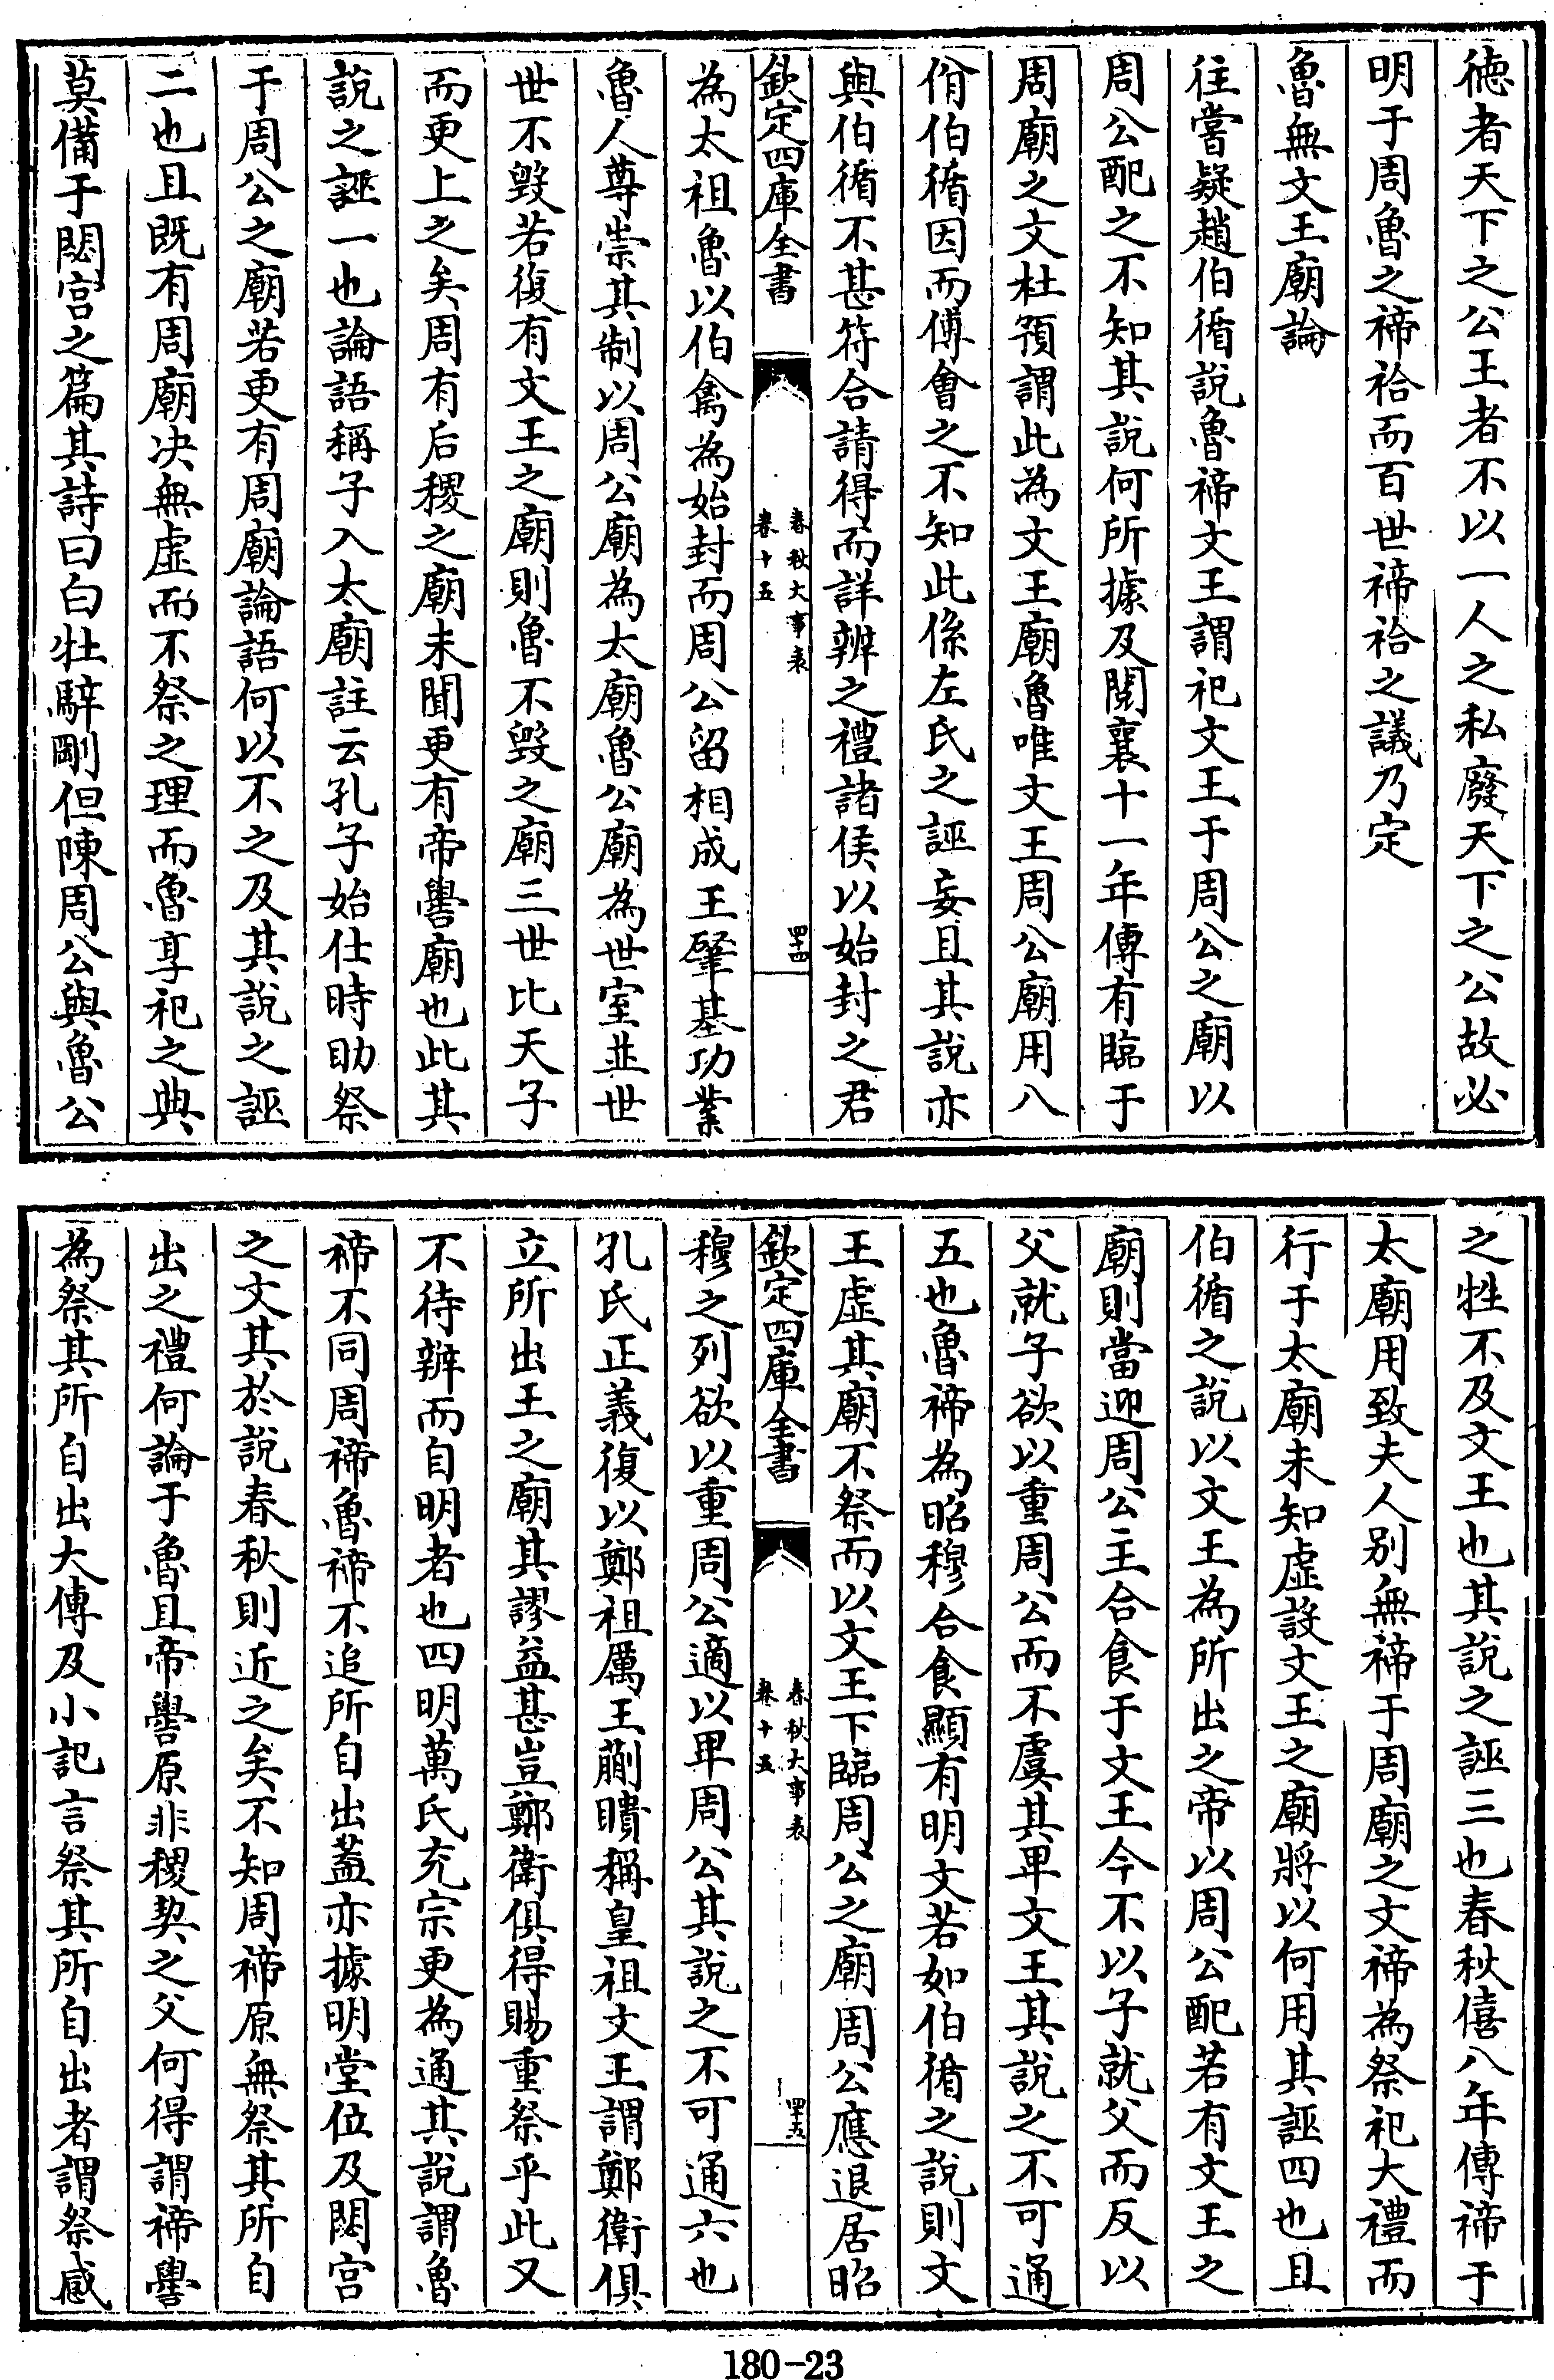 徳者天下之公王者不以一人之私廢天下之公故必
明于周魯之禘祫而百世禘祫之議乃定
魯無文王廟論
往嘗疑趙伯循説魯禘文王謂祀文王于周公之廟以
周公配之不知其説何所據及閲襄十一年傳有臨于
周廟之文杜預謂此為文王廟魯唯文王周公廟用八
佾伯循因而傅會之不知此係左氏之誣妄且其説亦
與伯循不甚符合請得而詳辨之禮諸侯以始封之君
欽定四庫全書
春秋大事表
卷十五
四十四
為太祖魯以伯禽為始封而周公留相成王肇基功業
魯人尊崇其制以周公廟為太廟魯公廟為世室並世
世不毁若復有文王之廟則魯不毁之廟三世比天子
而更上之矣周有后稷之廟未聞更有帝嚳廟也此其
説之誣一也論語稱子入太廟註云孔子始仕時助祭
于周公之廟若更有周廟論語何以不之及其説之誣
二也且既有周廟决無虚而不祭之理而魯享祀之典
莫備于閟宫之篇其詩曰白牡騂剛但陳周公與魯公
之牲不及文王也其説之誣三也春秋僖八年傳禘于
太廟用致夫人别無禘于周廟之文禘為祭祀大禮而
行于太廟未知虚設文王之廟將以何用其誣四也且
伯循之説以文王為所出之帝以周公配若有文王之
廟則當迎周公主合食于文王今不以子就父而反以
父就子欲以重周公而不虞其卑文王其説之不可通
五也魯禘為昭穆合食顯有明文若如伯循之説則文
王虚其廟不祭而以文王下臨周公之廟周公應退居昭
欽定四庫全書
春秋大事表
卷十五
四十五
穆之列欲以重周公適以卑周公其説之不可通六也
孔氏正義復以鄭祖厲王蒯聵稱皇祖文王謂鄭衛俱
立所出王之廟其謬益甚豈鄭衛俱得賜重祭乎此又
不待辨而自明者也四明萬氏充宗更為通其説謂魯
禘不同周禘魯禘不追所自出蓋亦據明堂位及閟宫
之文其於説春秋則近之矣不知周禘原無祭其所自
出之禮何論于魯且帝嚳原非稷契之父何得謂禘嚳
為祭其所自出大傳及小記言祭其所自出者謂祭感
180-23